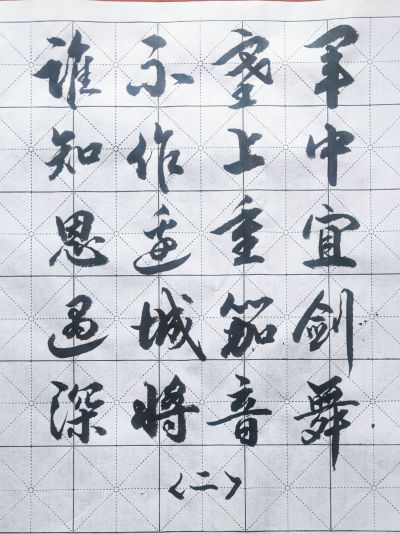 军中宜剑舞
塞上重笳音
不作边城将
谁知恩遇深
〈二〉